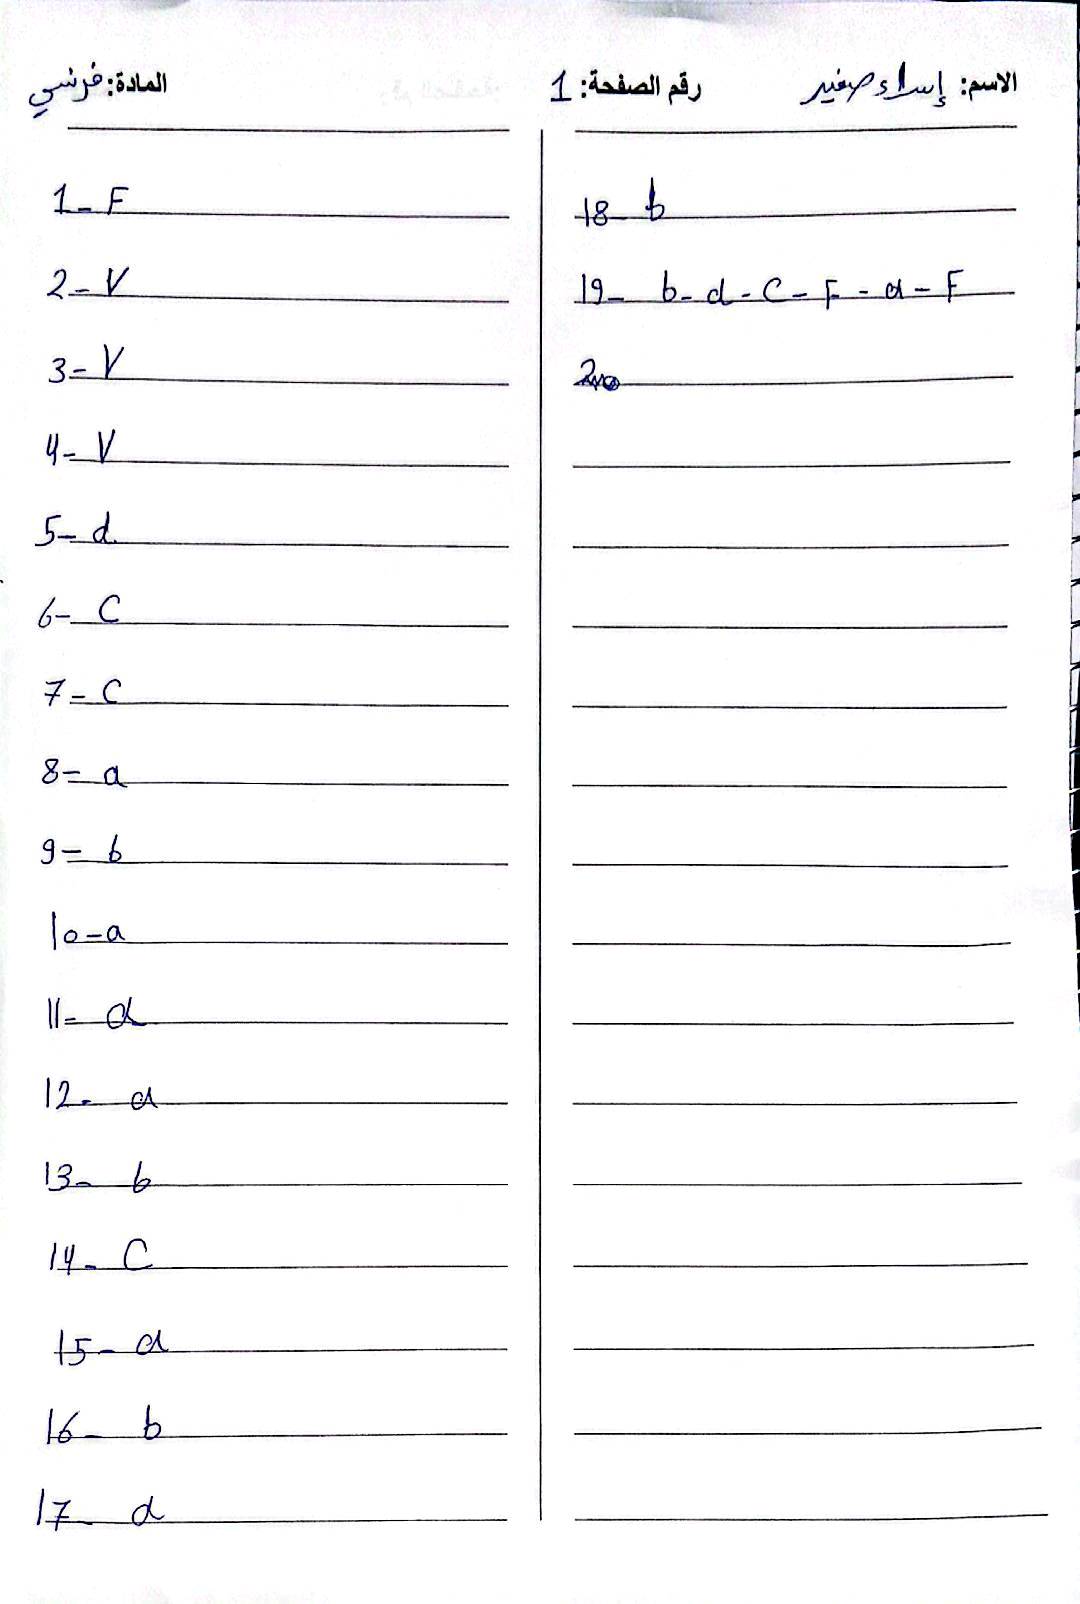 الاسم: إسراء صغير رقم الصفحة: 1 المادة: فرنسي
1- F
2- V
3- V
4- V
5- d
6- C
7- C
8- a
9- b
10- a
11- d
12- a
13- b
14- C
15- a
16- b
17- d
18- b
19- b-d-C-F-a-F